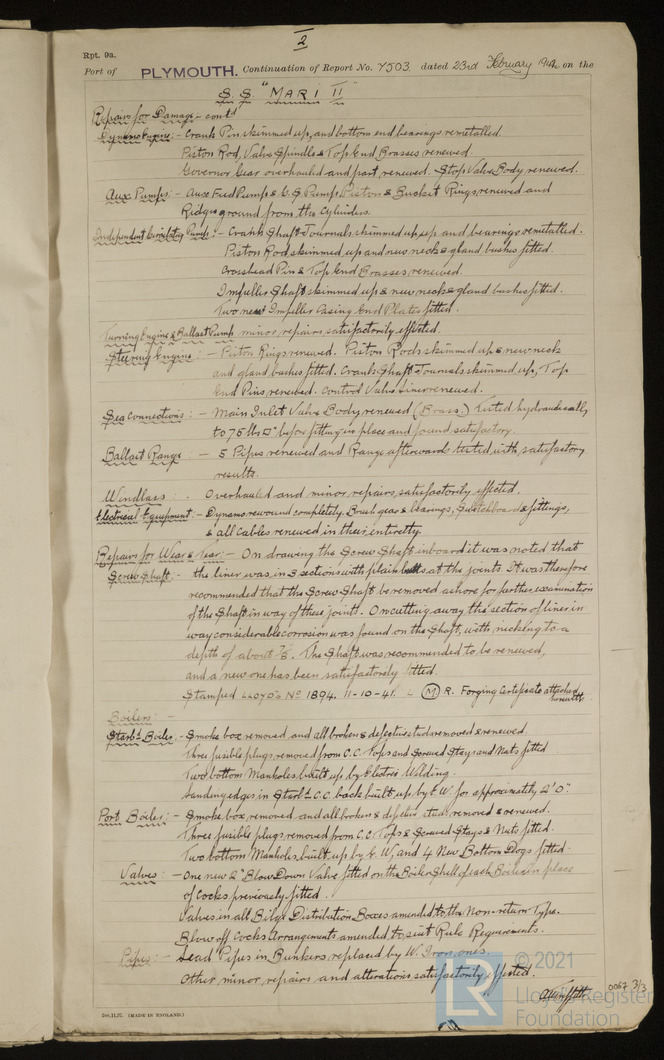 2
Rpt. 9a.
Port of PLYMOUTH. Continuation of Report No. 7503 dated 23rd February 1942 on the
S.S. "MARI II"
Repairs for Damage - contd
Dynamo Engine: - Crank Pin skimmed up, and bottom end bearings remetalled.
Piston Rod, Valve Spindle & Top End Brasses renewed.
Governor Gear overhauled and part renewed. Stop Valve Body renewed.
Aux Pumps: - Aux Feed Pump & G.S. Pump, Piston & Bucket Rings renewed and
Ridges ground from the cylinders.
Independent Circulating Pump: - Crank Shaft Journals skimmed up, and bearings remetalled.
Piston Rod skimmed up and new neck & gland bushes fitted.
Crosshead Pin & Top End Brasses renewed.
Impeller Shaft skimmed up & new neck & gland bushes fitted.
Two new Impeller Casing End Plates fitted.
Turning Engine & Ballast Pump minor repairs satisfactorily effected.
Steering Engine: - Piston Rings renewed. Piston Rods skimmed up & new neck
and gland bushes fitted. Crank Shaft Journals skimmed up, Top
End Pins renewed. Control Valve Liner renewed.
Sea Connections: - Main Inlet Valve Body renewed (Brass). Tested hydraulically
to 75 lbs □" before fitting in place and found satisfactory.
Ballast Range: - 5 Pipes renewed and Range afterwards tested with satisfactory
results.
Windlass: - Overhauled and minor repairs satisfactorily effected.
Electrical Equipment: - Dynamo rewound completely, Brush gear & bearings, Switchboard & fittings,
& all cables renewed in their entirety.
Repairs for Wear & Tear: - On drawing the Screw Shaft inboard it was noted that
Screw Shaft: - the liner was in 3 sections with plain butts at the joints. It was therefore
recommended that the Screw Shaft be removed ashore for further examination
of the Shaft in way of these joints. On cutting away the section of liner in
way considerable corrosion was found on the Shaft, with necking to a
depth of about 7/8". The Shaft was recommended to be renewed,
and a new one has been satisfactorily fitted.
Stamped LLOYD'S No 1894. 11-10-41. M R. Forging Certificate attached
herewith.
Boilers: -
Starbd Boiler: - Smoke box removed and all broken & defective studs removed & renewed.
Three fusible plugs removed from C.C. Tops and Screwed Stays and Nuts fitted
Two bottom Manholes built up by Electric Welding.
Landing edges in Starbd C.C. back built up by E.W. for approximately 2'0".
Port Boiler: - Smoke box, removed, and all broken & defective studs removed & renewed.
Three fusible plugs removed from C.C. Tops & Screwed Stays & Nuts fitted.
Two bottom Manholes built up by E.W. and 4 New Bottom Dogs fitted.
Valves: - One new 2" Blow Down Valve fitted on the Boiler Shell of each Boiler in place
of cocks previously fitted.
Valves in all Bilge Distribution Boxes amended to the Non-return Type.
Blow off Cocks Arrangements amended to suit Rule Requirements.
Pipes: - Lead Pipes in Bunkers replaced by W. Iron ones.
Other minor repairs and alterations satisfactorily effected.
0067 3/3
(MADE IN ENGLAND.)
LR
© 2021
Lloyd's Register
Foundation